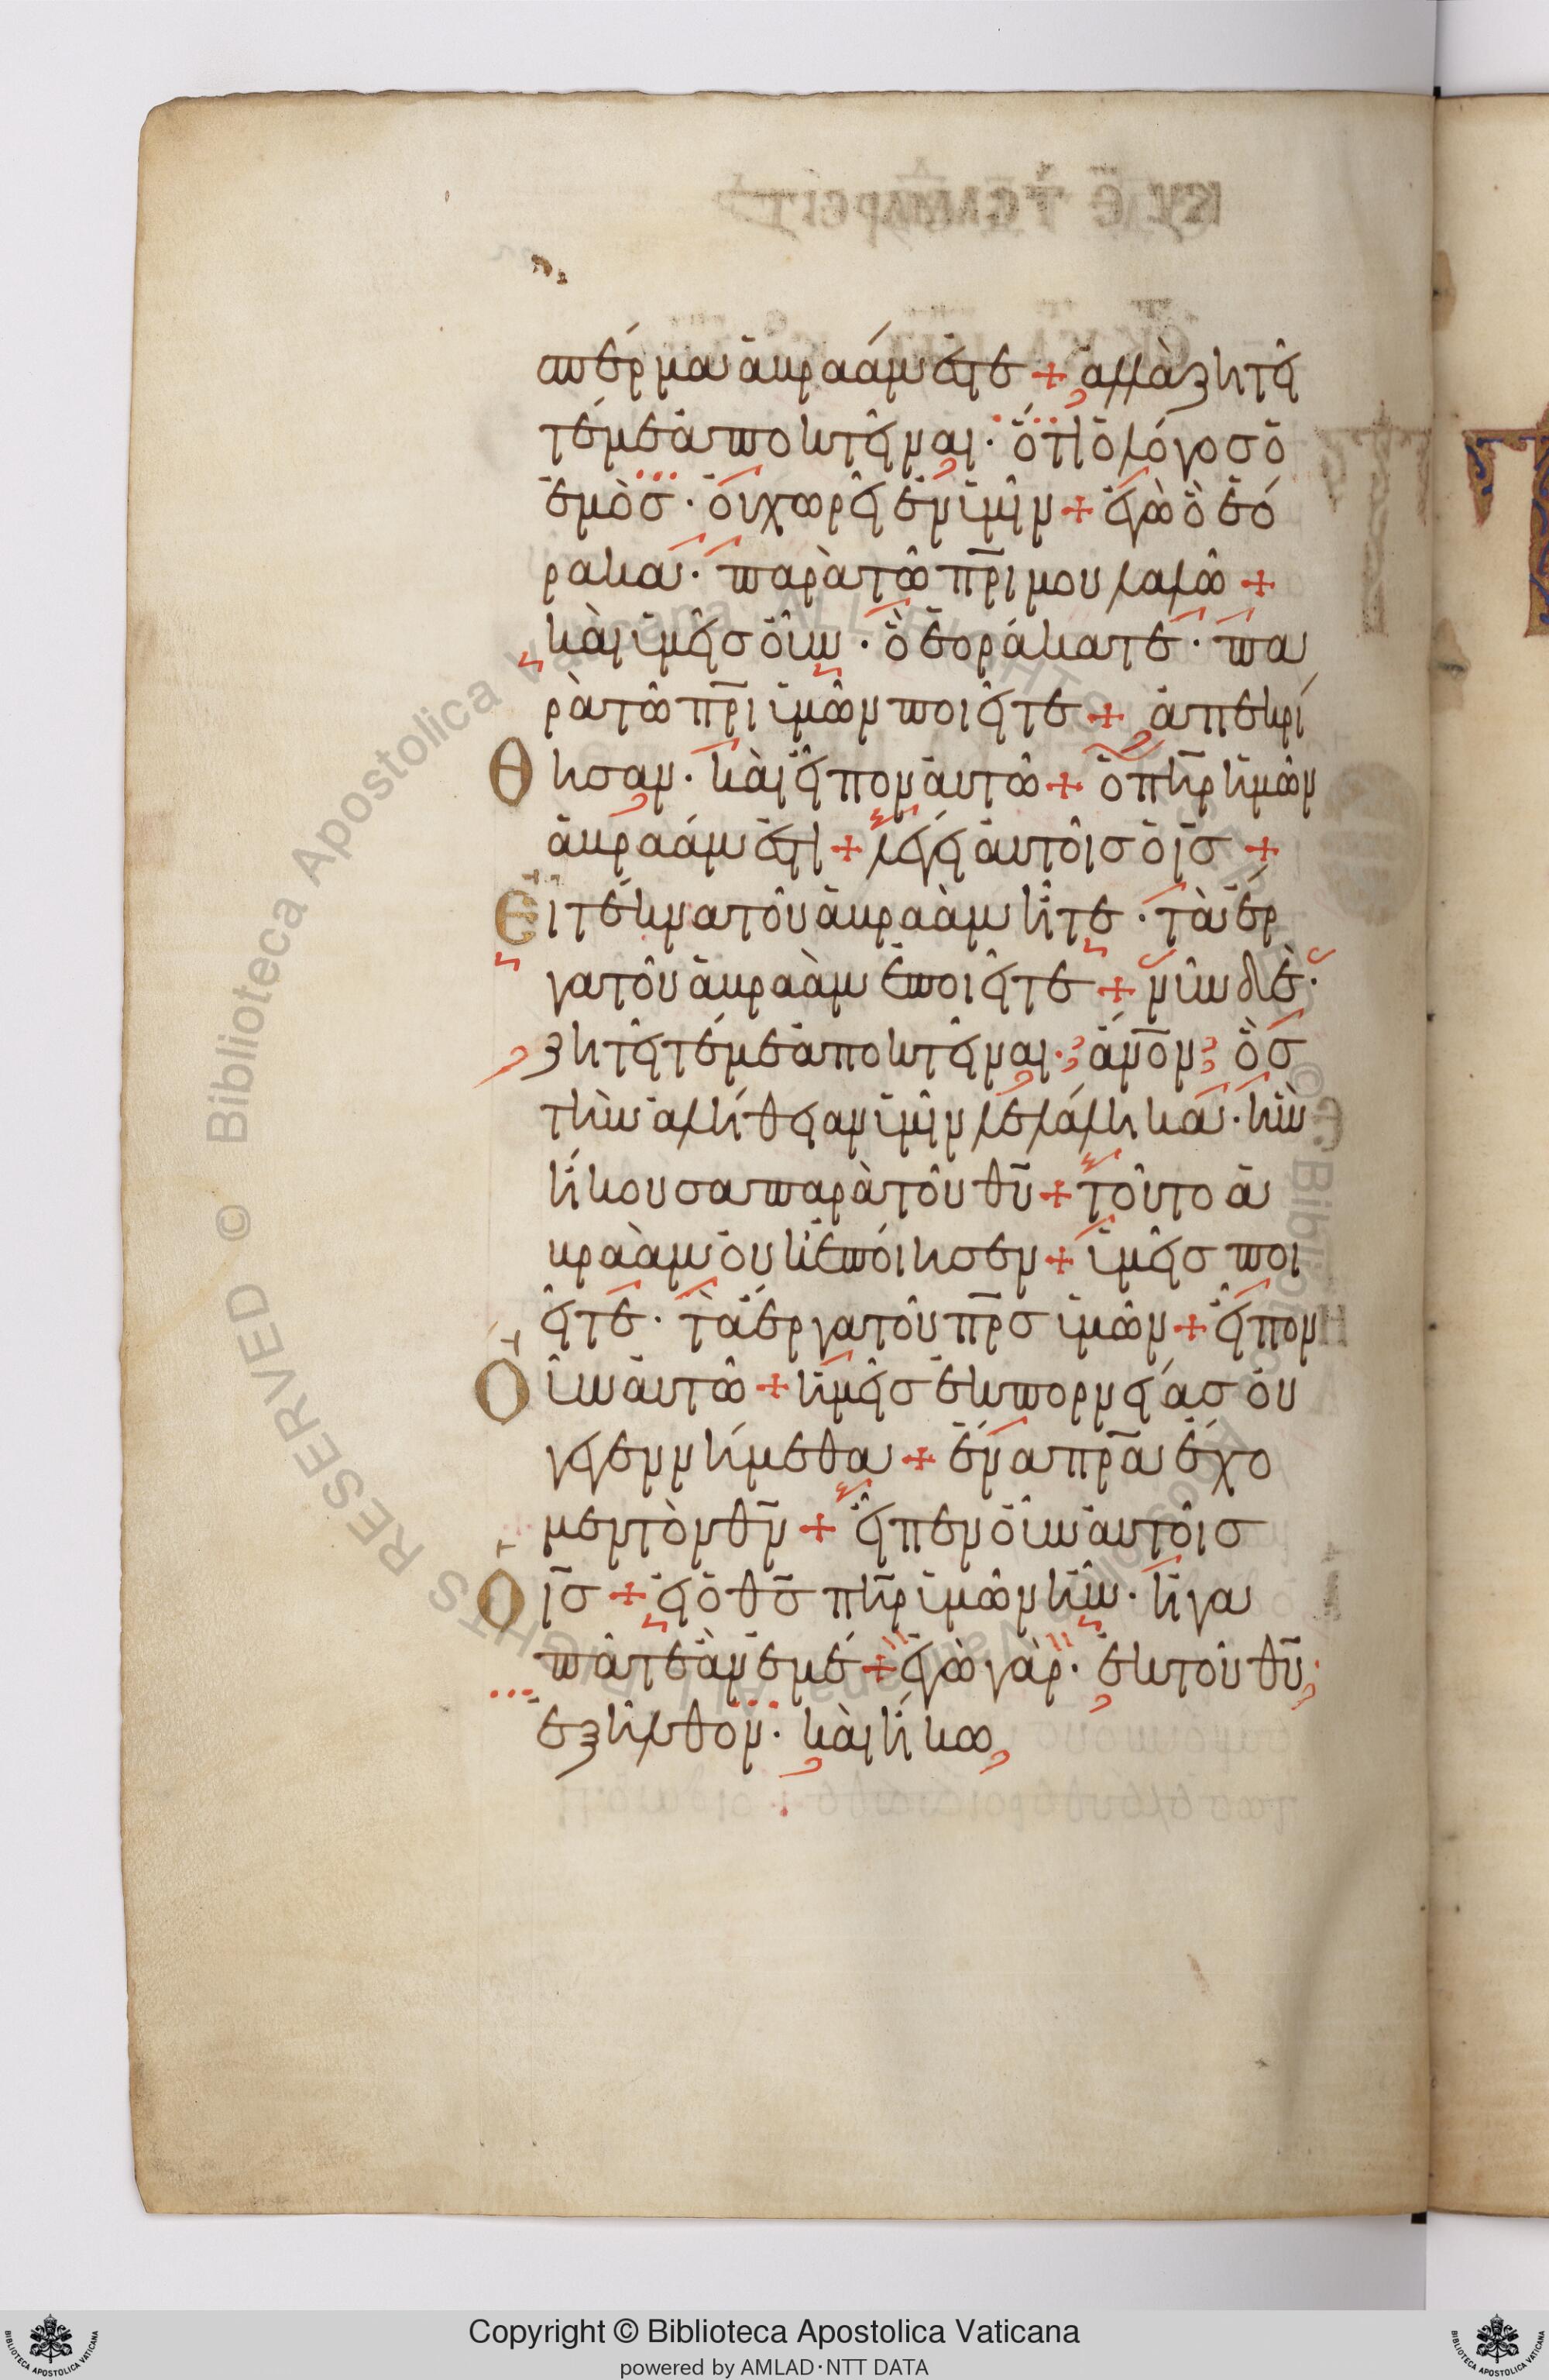 σπέρμα ἀβραάμ ἐστε + ἀλλὰ ζητεῖ
τέ με ἀποκτεῖναι · ὅτι ὁ λόγος ὁ
ἐμὸς · οὐ χωρεῖ ἐν ὑμῖν + ἐγὼ ὃ ἑό
ρακα · παρὰ τῶ πρι μου λαλῶ +
καὶ ὑμεῖς οὖν · ὃ ἑοράκατε · πα
ρὰ τῶ πρι ὑμῶν ποιεῖτε + ἀπεκρί
Θησαν · καὶ εἶπον αὐτῶ + ὁ πηρ ἡμῶν
ἀβραάμ ἐστι + λέγει αὐτοῖς ὁ ις +
Εἰ τέκνα τοῦ ἀβραὰμ ἦτε · τὰ ἔρ
γα τοῦ ἀβραὰμ ἐποιεῖτε + νῦν δὲ ·
ζητεῖτέ με ἀποκτεῖναι · ἄνον ὃσ
τὴν ἀλήθειαν ὑμῖν λελάληκα · ἣν
ἤκουσα παρὰ τοῦ θυ + τοῦτο ἀ
βραὰμ οὐκ ἐποίησεν + ὑμεῖς ποι
εῖτε · τὰ ἔργα τοῦ πρσ ὑμῶν + εἶπον
Οὖν αὐτῶ + ἡμεῖς ἐκ πορνείας οὐ
γεγεννήμεθα + ἕνα πρα ἔχο
μεν τὸν θν + εἶπεν οὖν αὐτοῖς
Ὁ ις + εἰ ὁ θς πηρ ὑμῶν ἦν · ἠγα
πᾶτε ἂν ἐμέ + ἐγὼ γὰρ · ἐκ τοῦ θυ
ἐξῆλθον · καὶ ἥκω
Copyright © Biblioteca Apostolica Vaticana
powered by AMLAD·NTT DATA